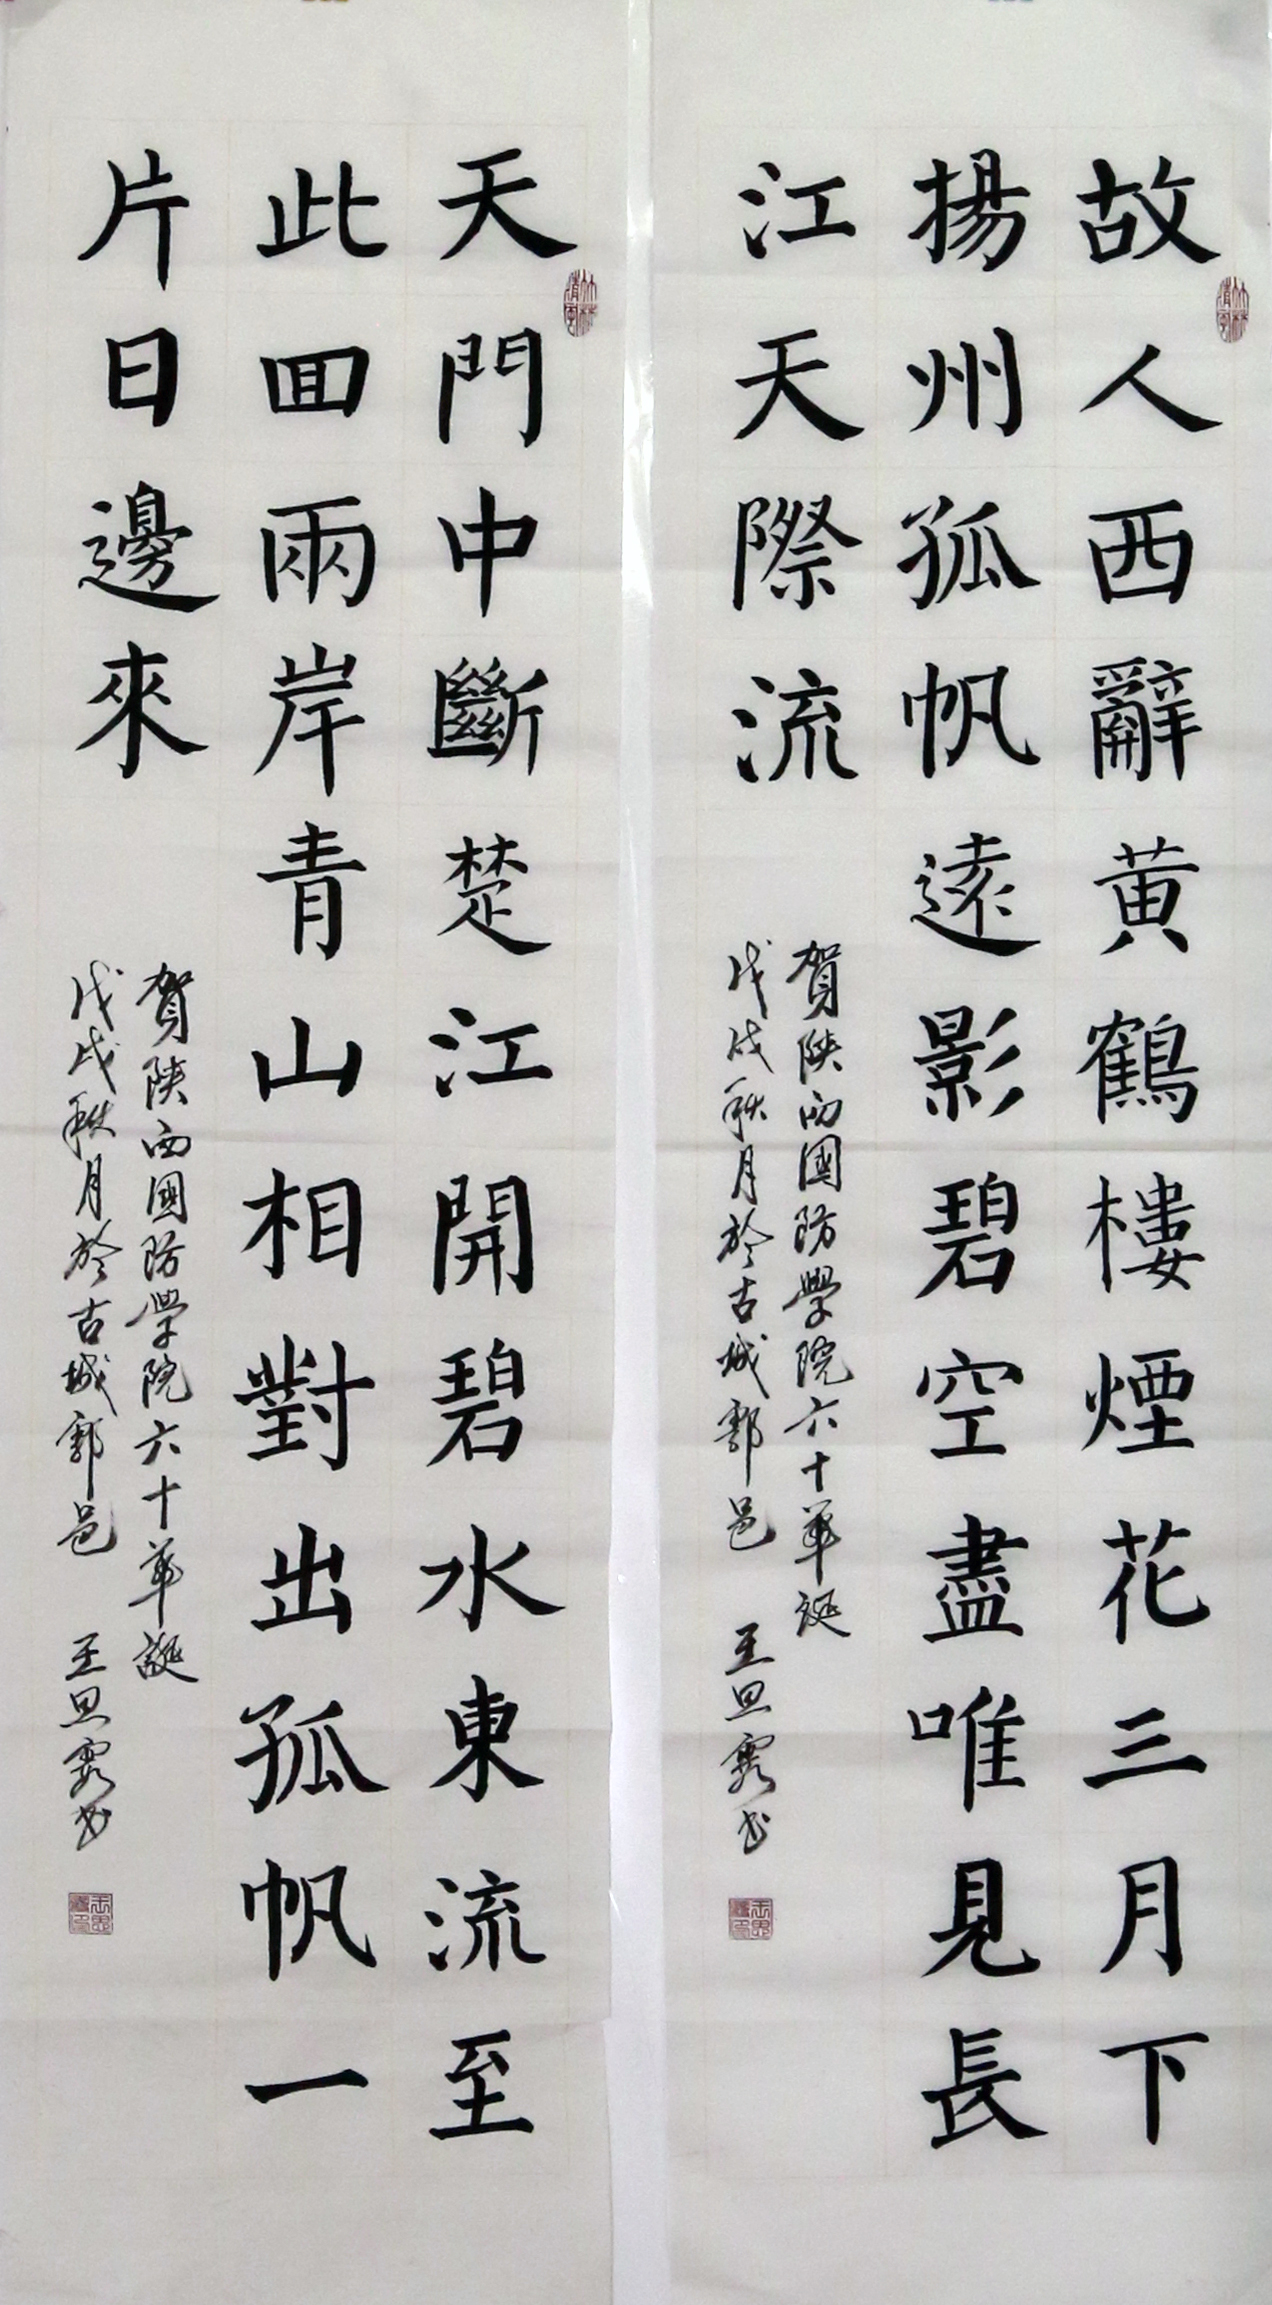 故人西辭黄鶴樓煙花三月下
揚州孤帆遠影碧空盡唯見長
江天際流
賀陝西國防學院六十華誕
戊戌秋月於古城鄠邑 王思云書
天門中斷楚江開碧水東流至
此回兩岸青山相對出孤帆一
片日邊來
賀陝西國防學院六十華誕
戊戌秋月於古城鄠邑 王書